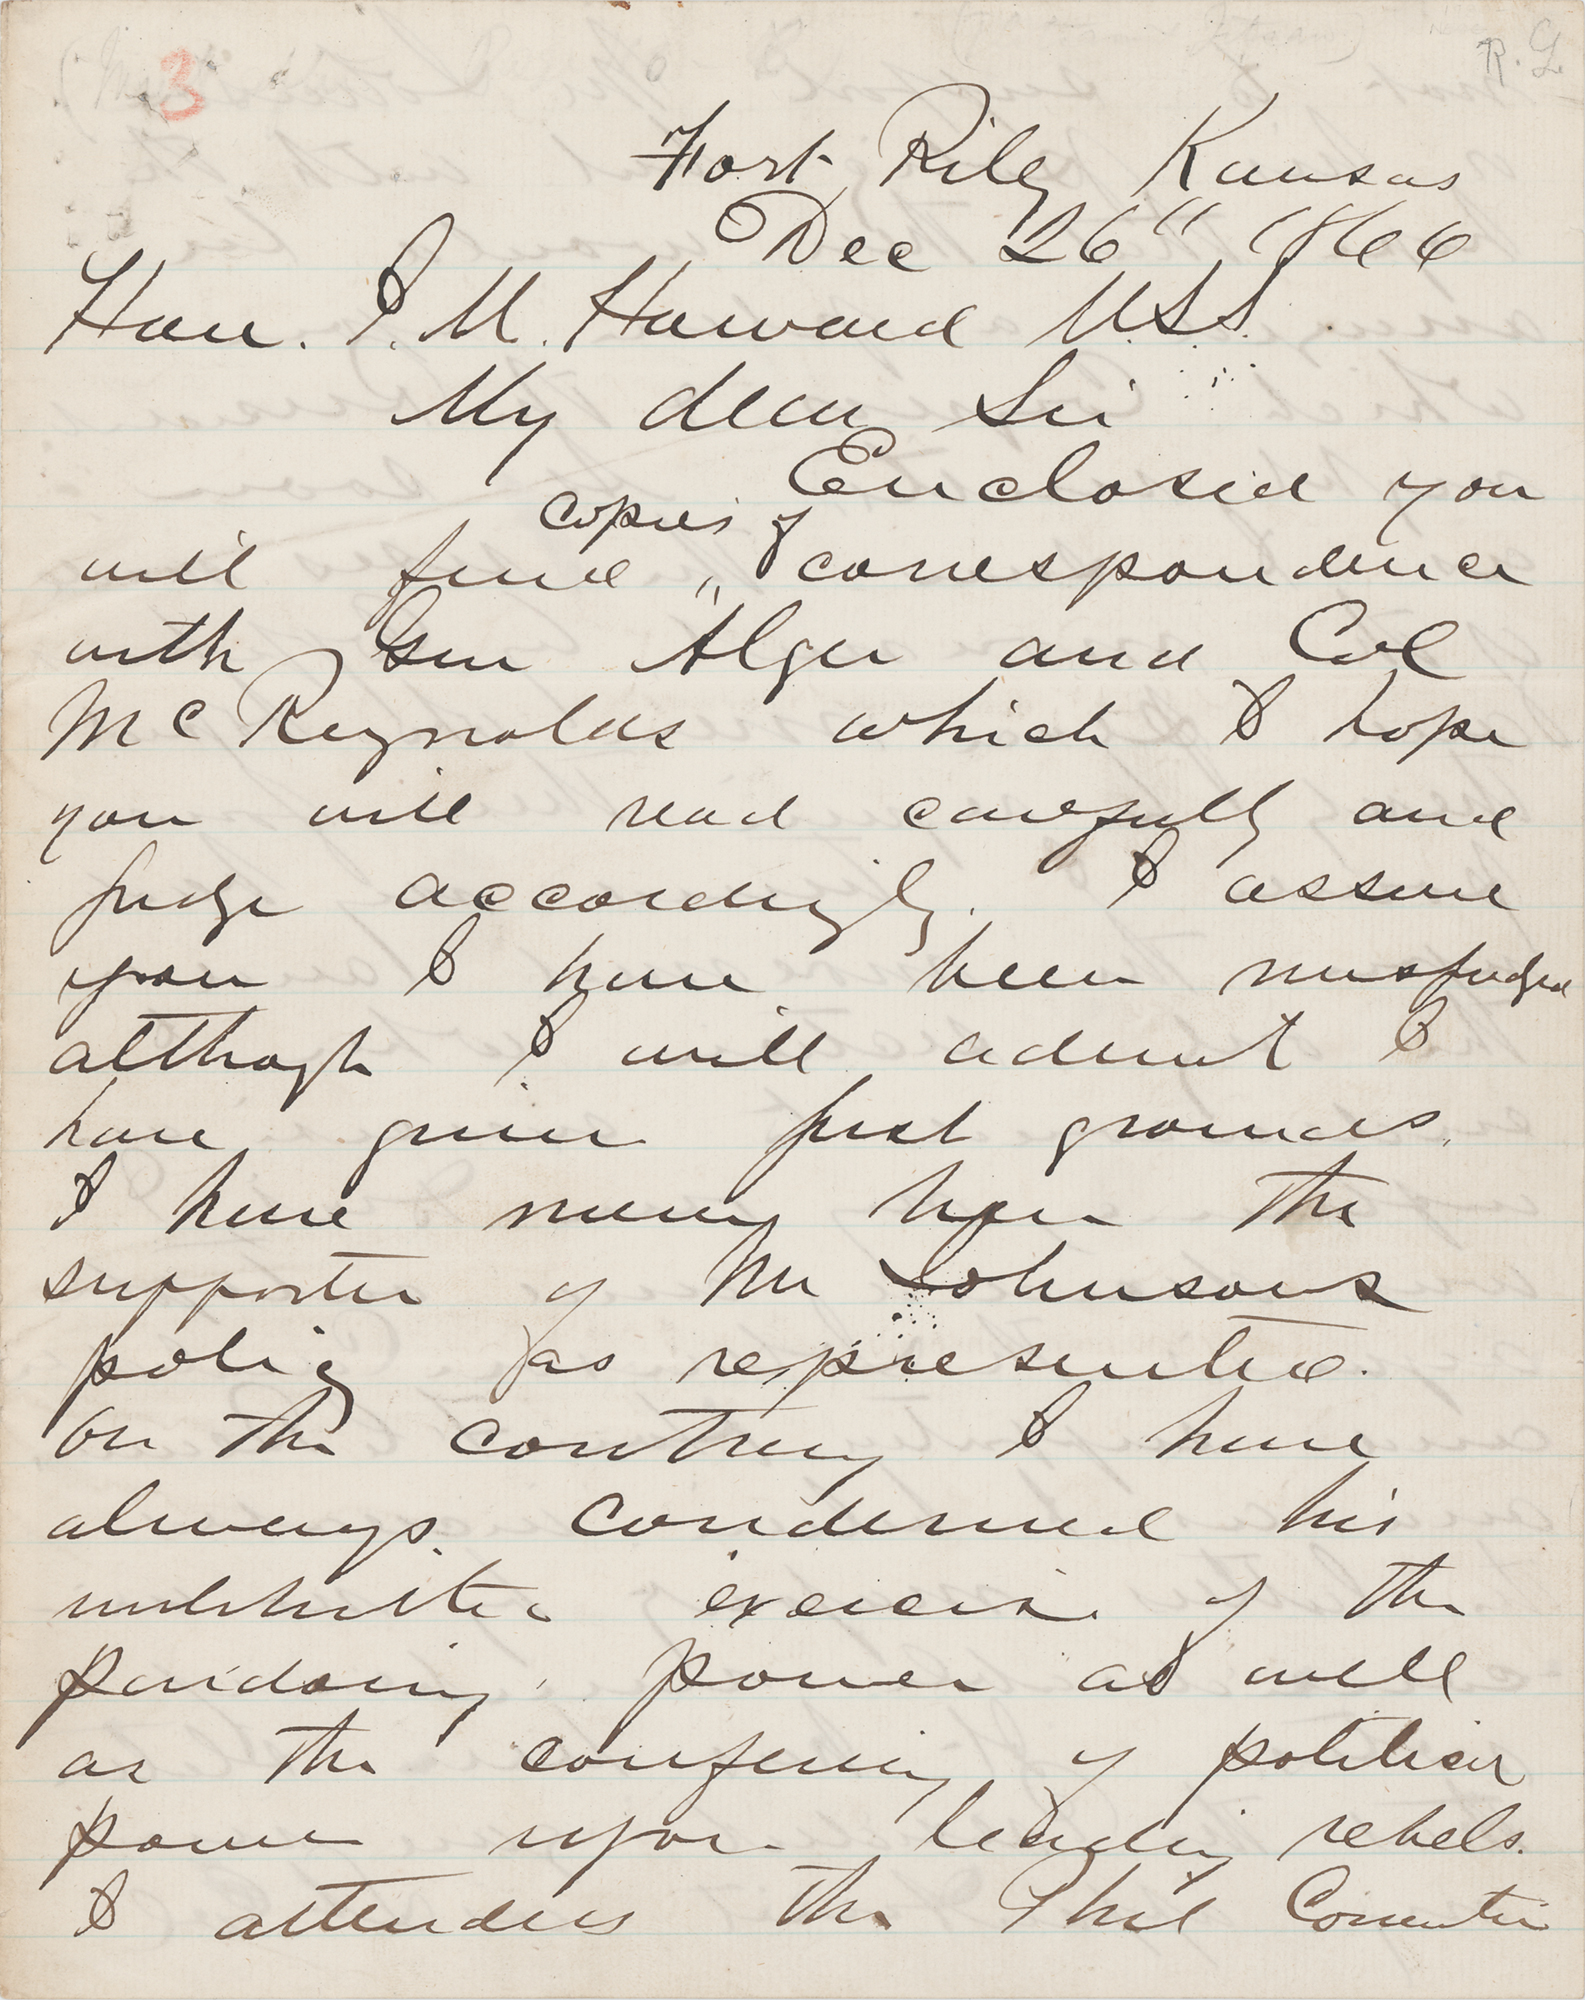 3
R. G.
Fort Riley Kansas
Dec 26" 1866
Hon. J. M. Howard U.S.S.
My dear Sir
Enclosed you
copies of
will find " correspondence
with Gen Alger and Col
McReynolds which I hope
you will read carefully and
judge accordingly. I assure
you I have been misjudged
although I will admit I
have given just grounds.
I have never been the
supporter of Mr Johnsons
policy as represented.
On the contrary I have
always condemned his
unlimited exercise of the
pardoning power as well
as the confering of political
power upon leading rebels.
I attended the Phil Convention